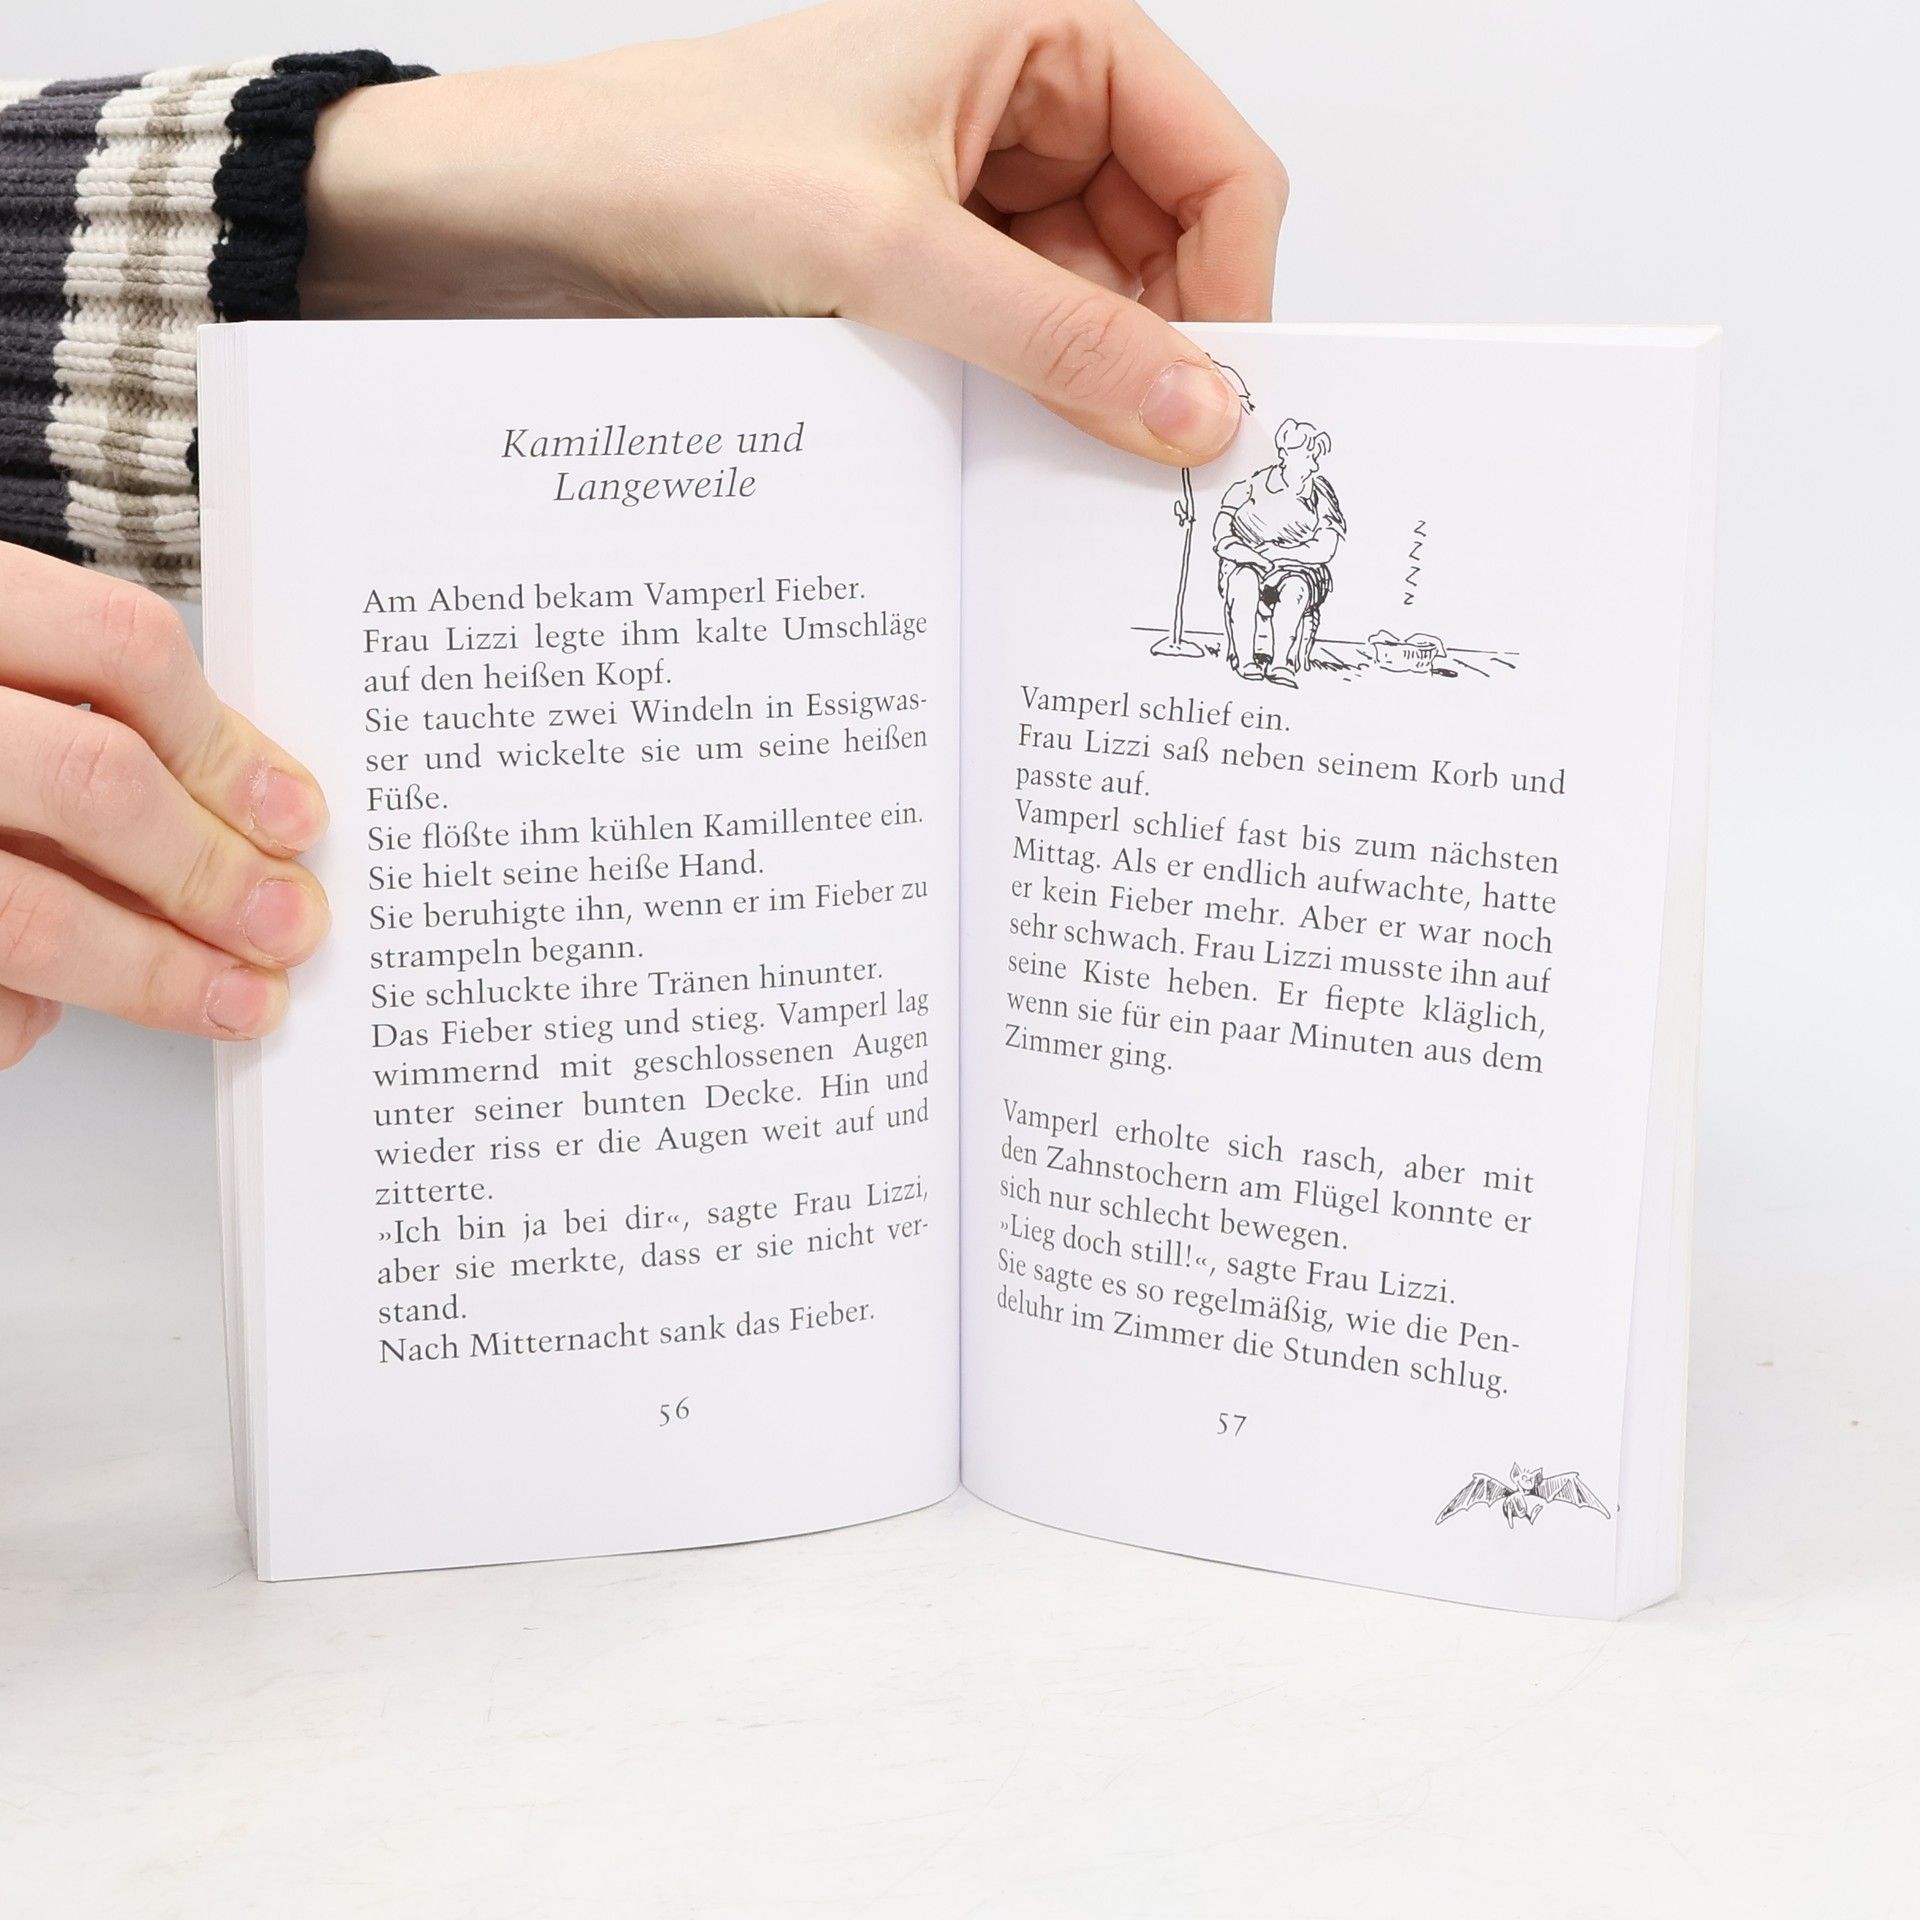 Kamillentee und
Langeweile
Am Abend bekam Vamperl Fieber.
Frau Lizzi legte ihm kalte Umschläge
auf den heißen Kopf.
Sie tauchte zwei Windeln in Essigwas-
ser und wickelte sie um seine heißen
Füße.
Sie flößte ihm kühlen Kamillentee ein.
Sie hielt seine heiße Hand.
Sie beruhigte ihn, wenn er im Fieber zu
strampeln begann.
Sie schluckte ihre Tränen hinunter.
Das Fieber stieg und stieg. Vamperl lag
wimmernd mit geschlossenen Augen
unter seiner bunten Decke. Hin und
wieder riss er die Augen weit auf und
zitterte.
»Ich bin ja bei dir«, sagte Frau Lizzi,
aber sie merkte, dass er sie nicht ver-
stand.
Nach Mitternacht sank das Fieber.
56
z
z
z
z
Vamperl schlief ein.
Frau Lizzi saß neben seinem Korb und
passte auf.
Vamperl schlief fast bis zum nächsten
Mittag. Als er endlich aufwachte, hatte
er kein Fieber mehr. Aber er war noch
sehr schwach. Frau Lizzi musste ihn auf
seine Kiste heben. Er fiepte kläglich,
wenn sie für ein paar Minuten aus dem
Zimmer ging.
Vamperl erholte sich rasch, aber mit
den Zahnstochern am Flügel konnte er
sich nur schlecht bewegen.
»Lieg doch still!«, sagte Frau Lizzi.
Sie sagte es so regelmäßig, wie die Pen-
deluhr im Zimmer die Stunden schlug.
57